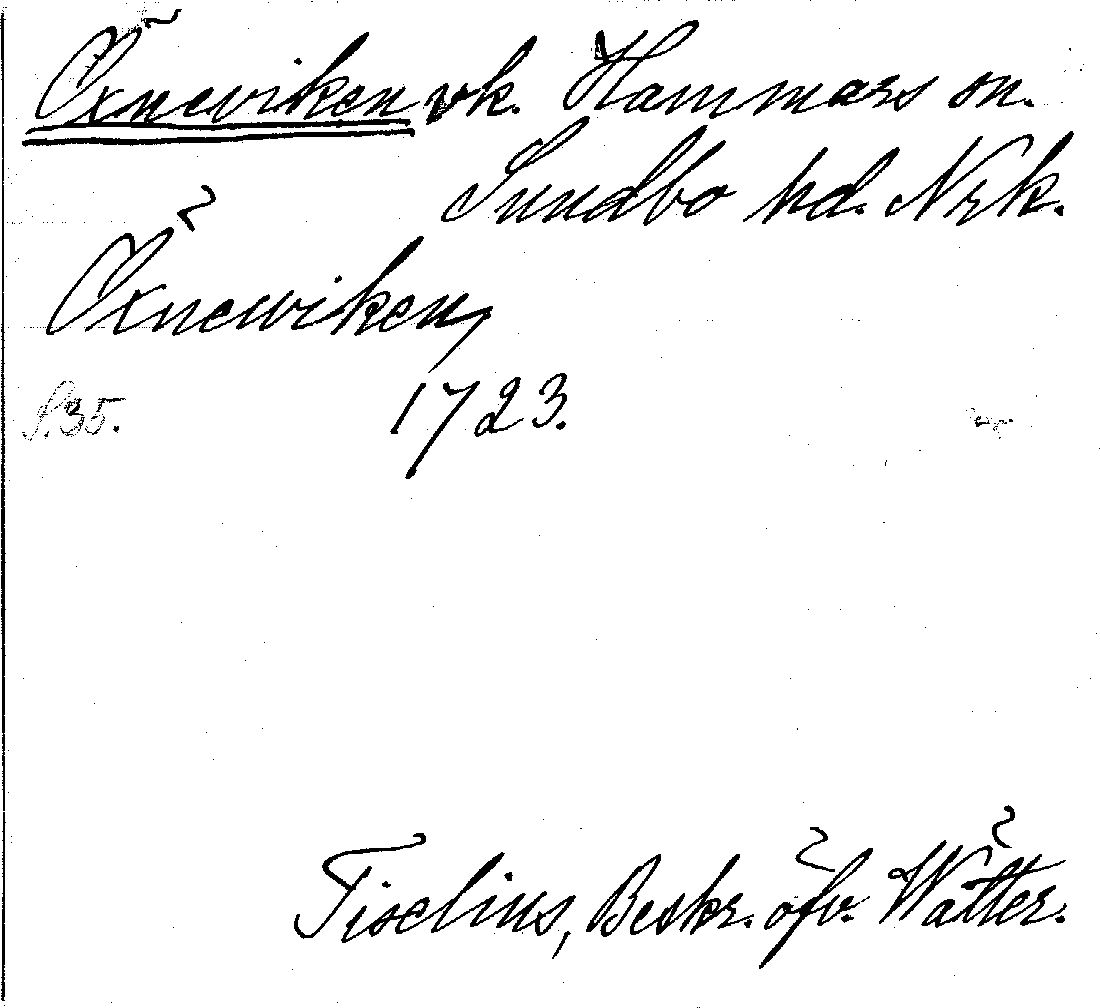 Öxnewiken vk. Hammars sn.
Sundbo hd. Nrk.
Öxnewiken,
S.35. 1723.
Tiselius, Beskr. öfv. Wätter.